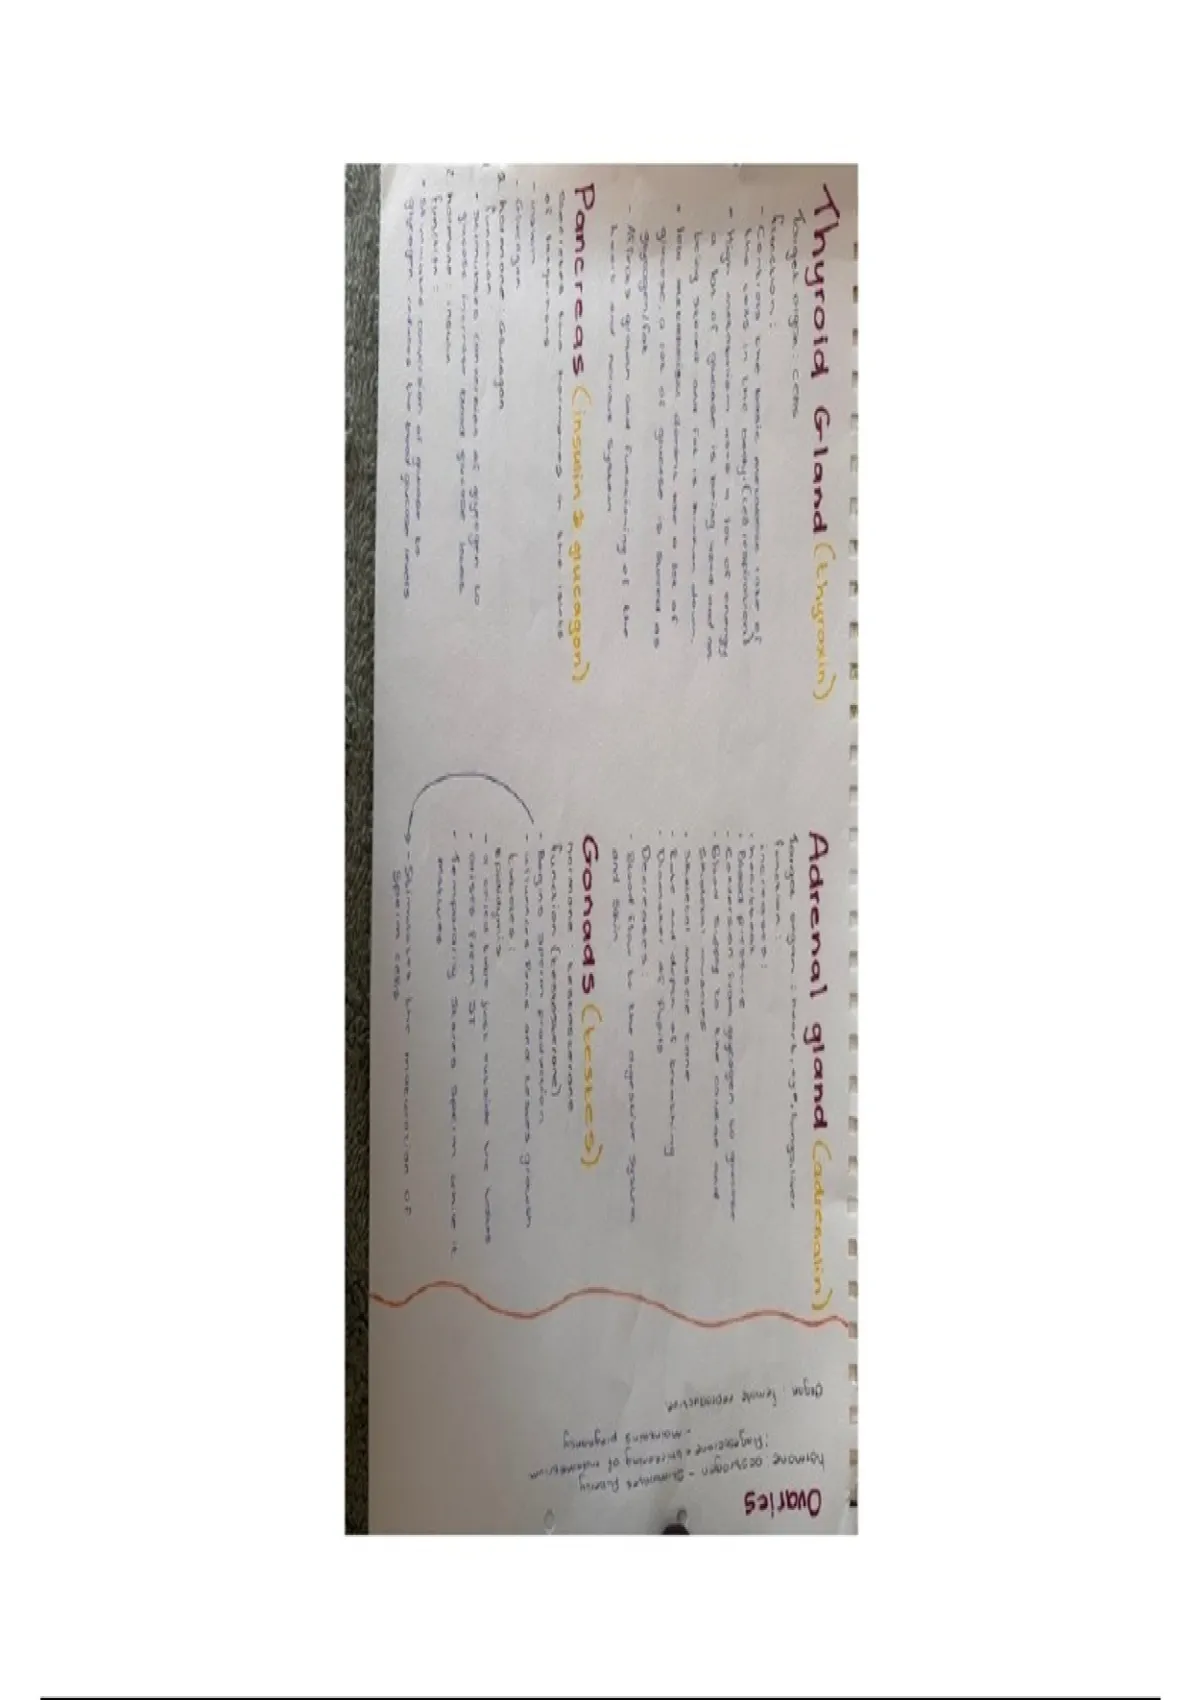 Thyroid Gland (thyroxin)
Target organ: cells
function:
- Controls the basic metabolic rate of
the cells in the body (cell respiration)
• High metabolism uses a lot of energy
a lot of glucose is being used and not
being stored and fat is broken down.
• low metabolism doesn't use a lot of
glucose, a lot of glucose is stored as
glycogen/fat
- Affects growth and functioning of the
heart and nervous system
Pancreas (insulin & glucagon)
Secretes two hormones in the islets
of langerhans
- insulin
- Glucagon
hormone: Glucagon
function
• Stimulates conversion of glycogen to
glucose increase blood glucose levels
2. hormone: insulin
function:
• Stimulates conversion of glucose to
glycogen reduces the blood glucose levels
Adrenal gland (adrenalin)
target organ: heart, eye, lungs, liver
function:
increases:
• heartbeat
• Blood pressure
• Conversion from glycogen to glucose
• Blood supply to the cardiac and
Skeletal muscles
• skeletal muscle tone
• Rate and depth of breathing
• Diameter of Pupils
Decreases:
• Blood flow to the digestive system
and skin
Gonads (testes)
hormone: testosterone
function (testosterone)
• Begins sperm production
• influences Penis and testes growth
tubules:
epididymis
- a coiled tube just outside the testes
- arises from ST
- Temporarily stores sperm while it
matures
→ - Stimulates the maturation of
Sperm cells
Ovaries
hormone: oestrogen - Stimulates Puberty
: Progesterone • thickening of endometrium
- maintains pregnancy
Organ: female reproductive